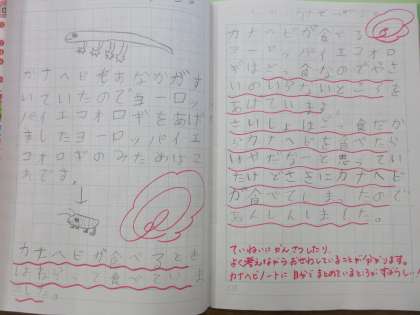 カナヘビもおなかがす
いていたのでヨーロッ
パイエコオロギをあげ
ましたヨーロッパイエ
コオロギのみためはこ
れです。
カナヘビが食べるとき
はねらって食べていま
した。
カナヘビが食べる
ヨーロッパイエコオロ
ギは
食なのでやさ
いのいらないところを
あげています。
さいしょは
食だか
らカナヘビを食べたら
いやだなーと思ってい
たけどさきにカナヘビ
が食べてしまったので
あんしんしました。
ていねいにかんさつしたり、
よく考えながらおせわしていることが分かります。
カナヘビノートに自分でまとめているところがすばらしい!